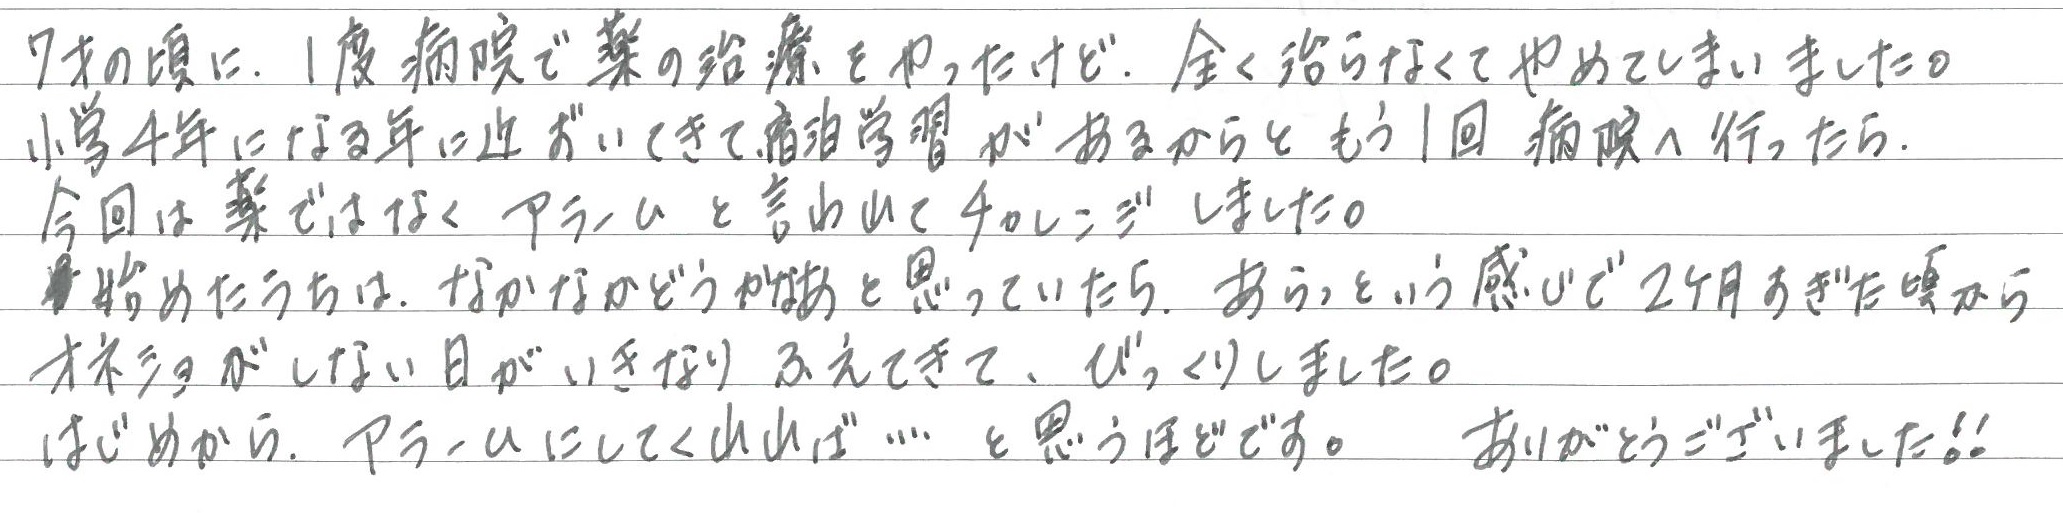 7才の頃に、1度病院で薬の治療をやったけど、全く治らなくてやめてしまいました。
小学4年になる年に近ずいてきて、宿泊学習があるからともう1回病院へ行ったら、
今回は薬ではなくアラームと言われてチャレンジしました。
始めたうちは、なかなかどうかなあと思っていたら、あらっという感じで2ケ月すぎた頃から
オネショがしない日がいきなりふえてきて、びっくりしました。
はじめから、アラームにしてくれれば…と思うほどです。 ありがとうございました!!